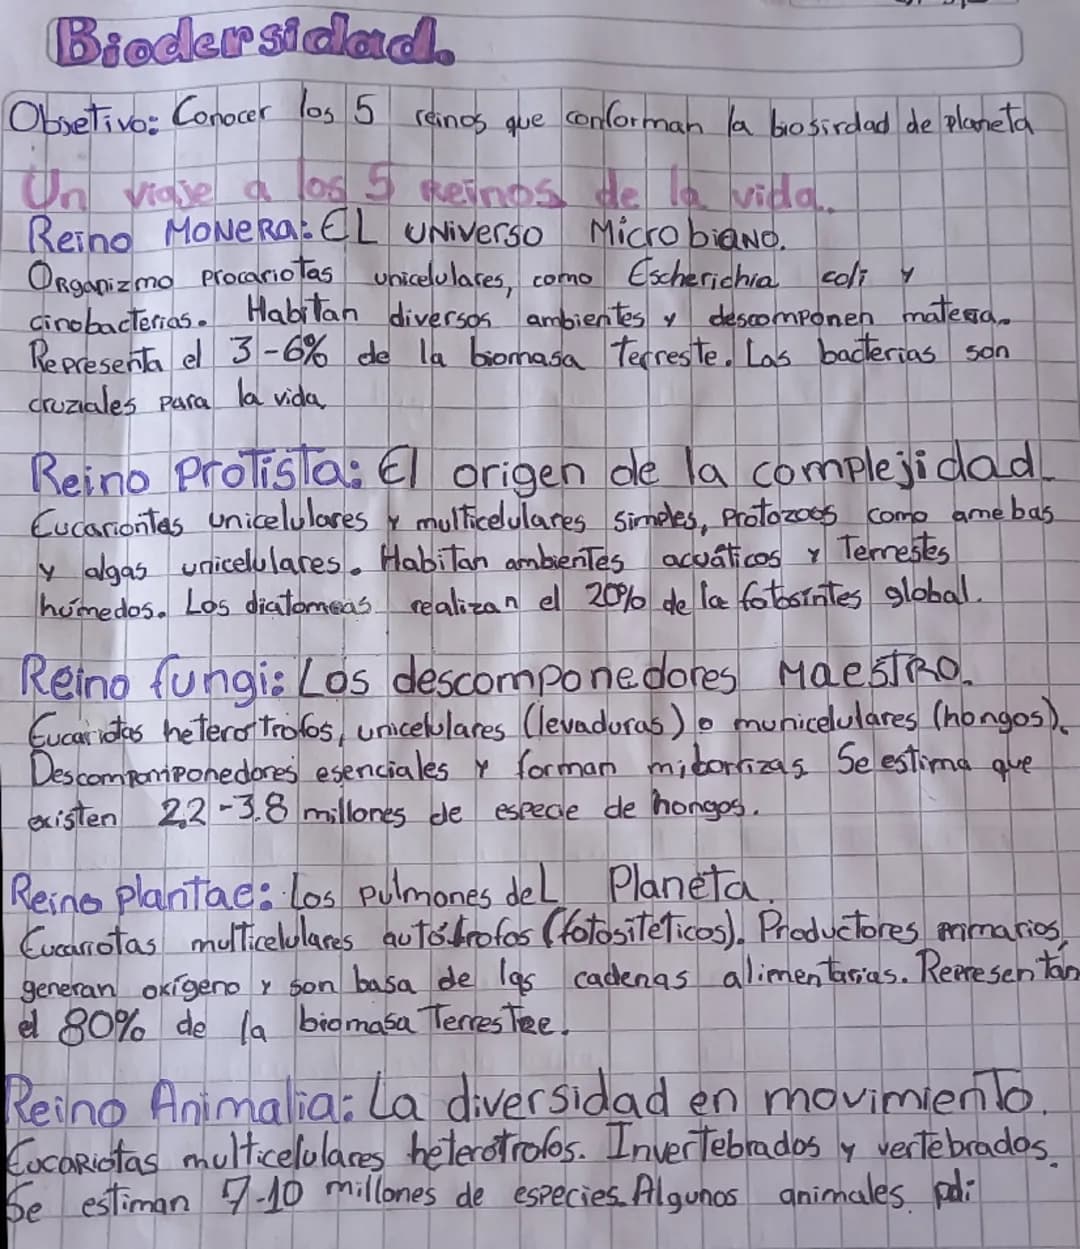 Biodersidad.
Obsetivo: Conocer los 5 reinos que conforman la biosirdad de planeta
Un viaje a los 5 Reinos de la vida.
Reino MONERA: EL UNIVERSO MicrobiaNO.
ORganizmo procariotas unicelulares, como Escherichia coli y
cinobacterias. Habitan diversos ambientes y descomponen materia.
Representa el 3-6% de la biomasa Terreste. Las bacterias son
cruziales para la vida
Reino Protista: El origen de la complejidad.
Eucariontas unicelulares y multicelulares simples, Protozoos como amebas
y algas unicelulares. Habitan ambientes acuáticos y Terrestes
húmedos. Los diatomeas realizan el 20% de la fotosintes global.
Reino fungi: Los descomponedores MaeSTRO.
Eucariotas heterotrofos, unicelulares (levaduras) o municelulares (hongos).
Descomponiponedores esenciales y forman miborrizas Se estima que
existen 2,2-3.8 millones de especie de hongos.
Reino plantae: Los pulmones del Planeta.
Eucarrotas multicelulares autótrofos (fotositéticos). Productores primarios,
generan oxígeno y son basa de las cadenas alimentarias. Representan
el 80% de la biomasa Terrestee.
Reino Animalia: La diversidad en movimiento.
Eucariotas multicelulares heterotrofos. Invertebrados y vertebrados.
Se estiman 7-10 millones de especies. Algunos animales, pdi